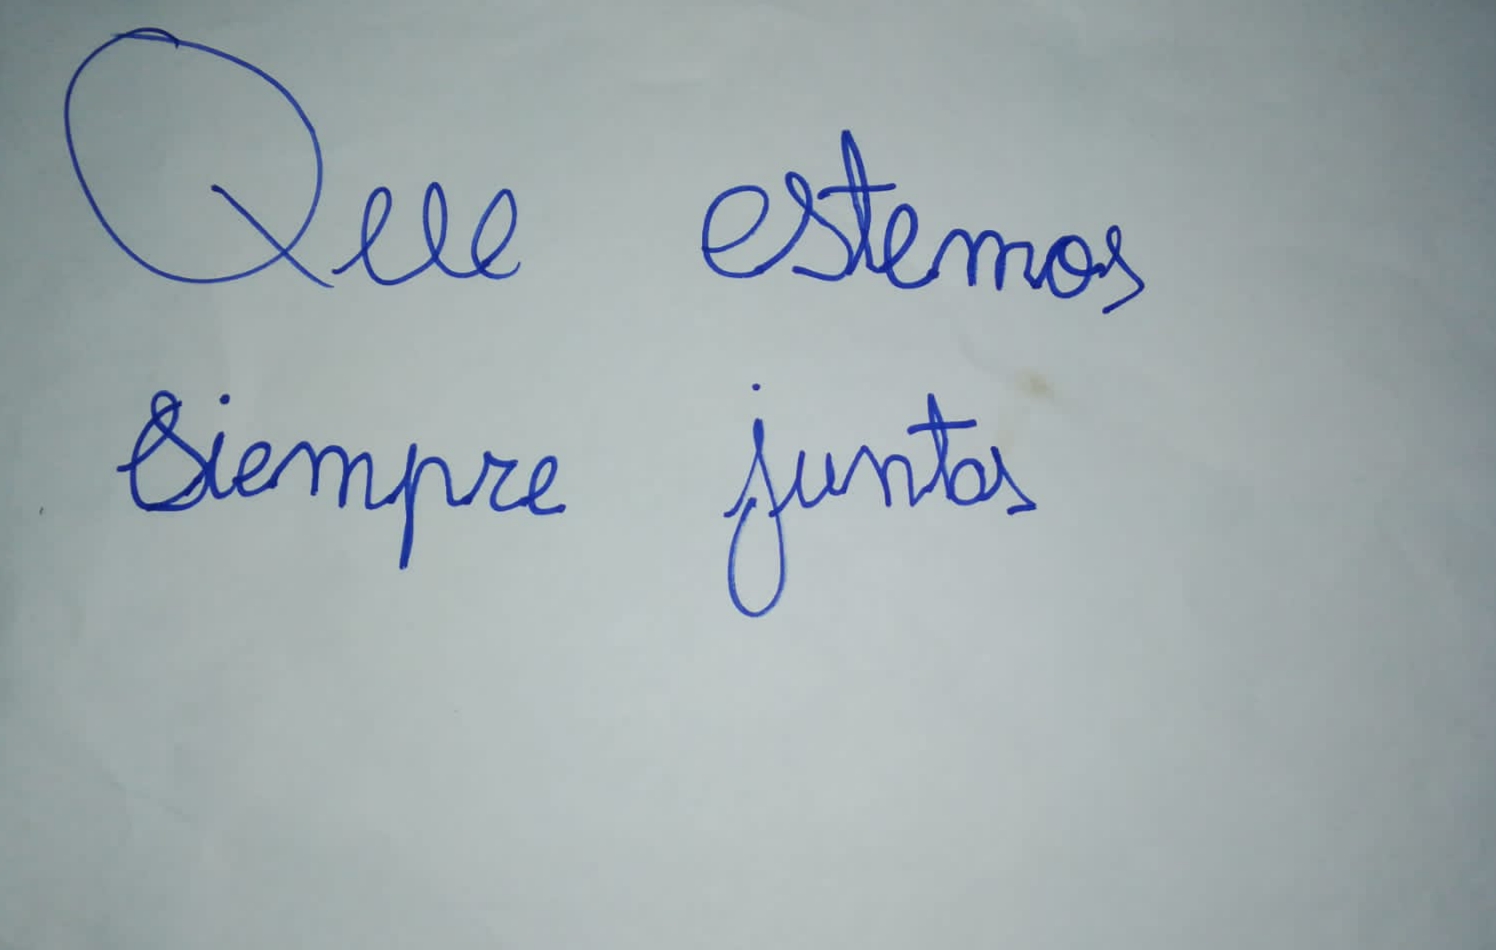 Que estemos
siempre juntos